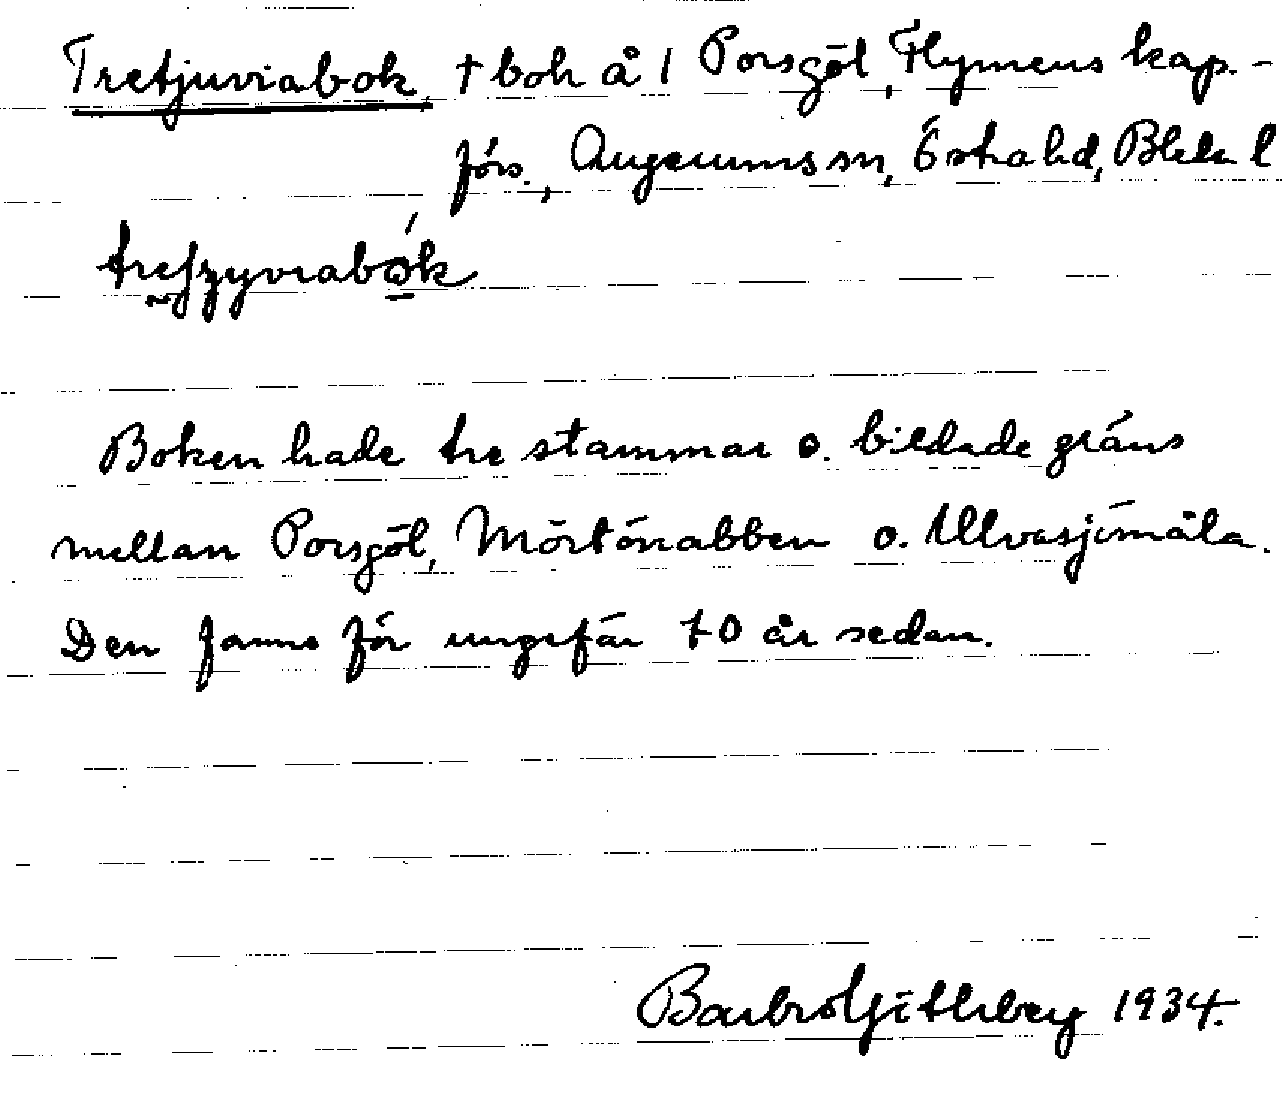 Tretjuviabok, † bok å 1 Porsgöl, Flymens kap.-
förs., Augerums sn, Östra hd, Blek. l
Boken hade tre stammar o. bildade gräns
mellan Porsgöl, Mörtönabben o. Ullvasjömåla.
Den fanns för ungefär 40 år sedan.
Barbro 1934.